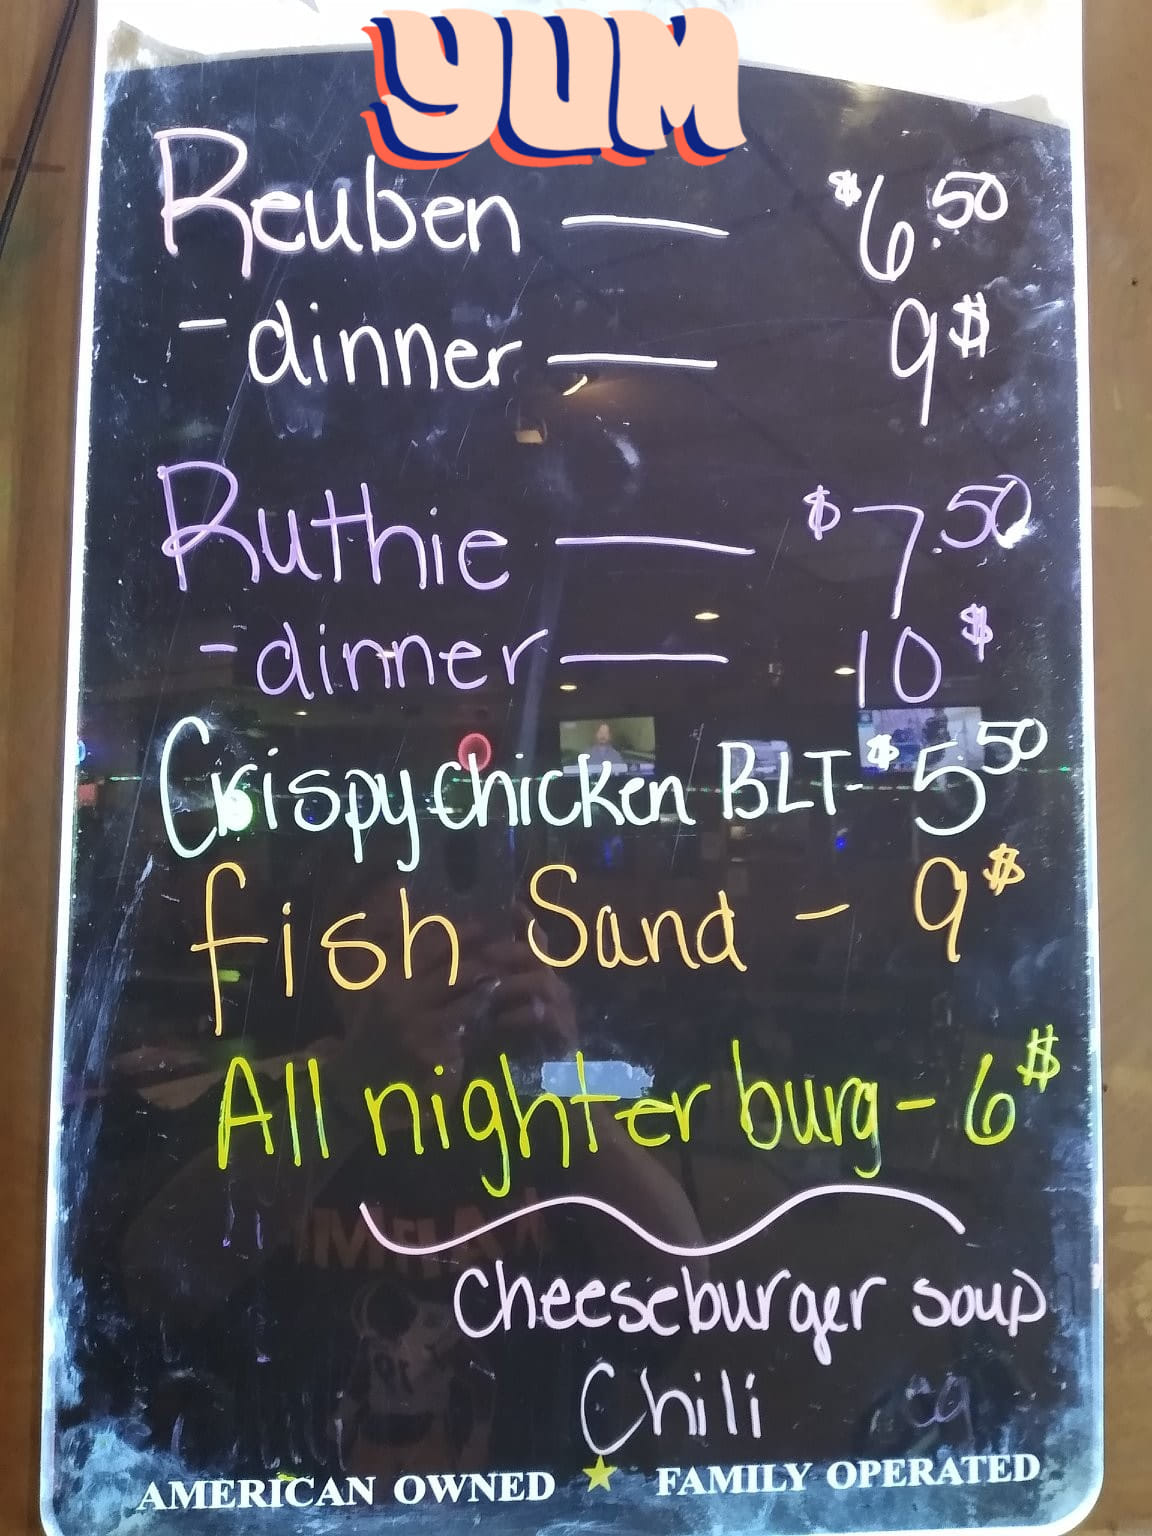 YUM
Reuben — $6.50
- dinner — 9$
Ruthie — $7.50
- dinner — 10$
Crispy chicken BLT - $5.50
fish Sand - 9$
All nighter burg - 6$
Cheeseburger soup
Chili
AMERICAN OWNED ★ FAMILY OPERATED